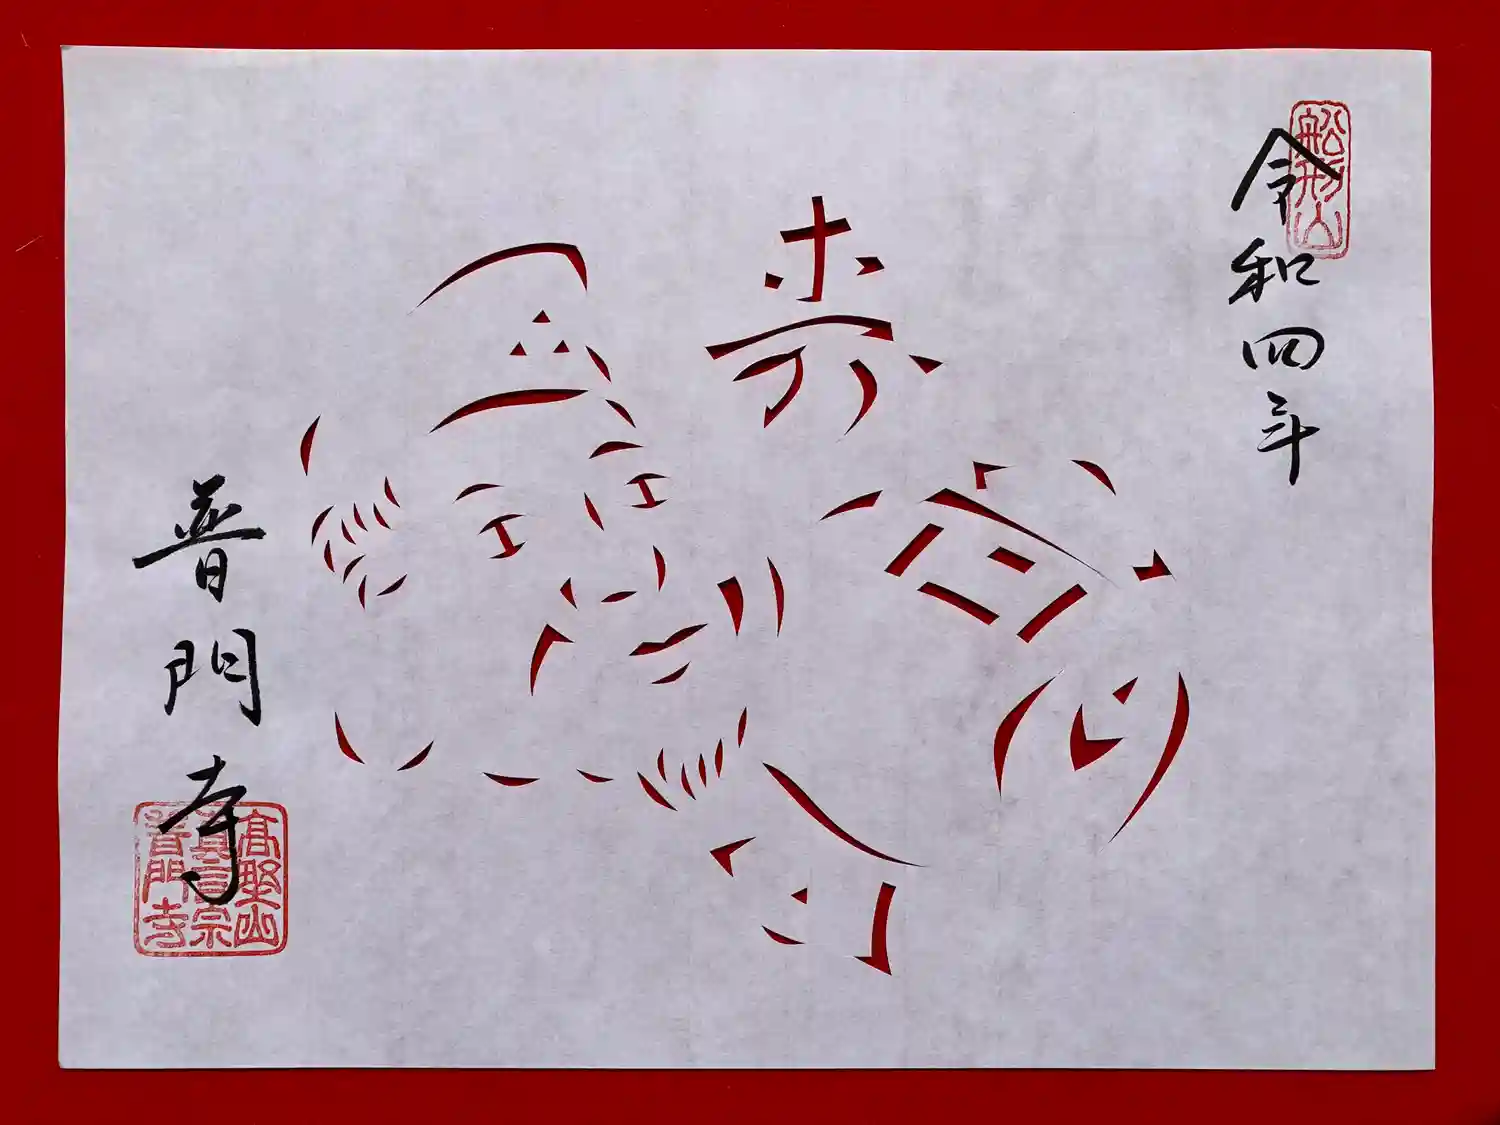 舩形山
令和四年
普門寺
高野山
真言宗
普門寺